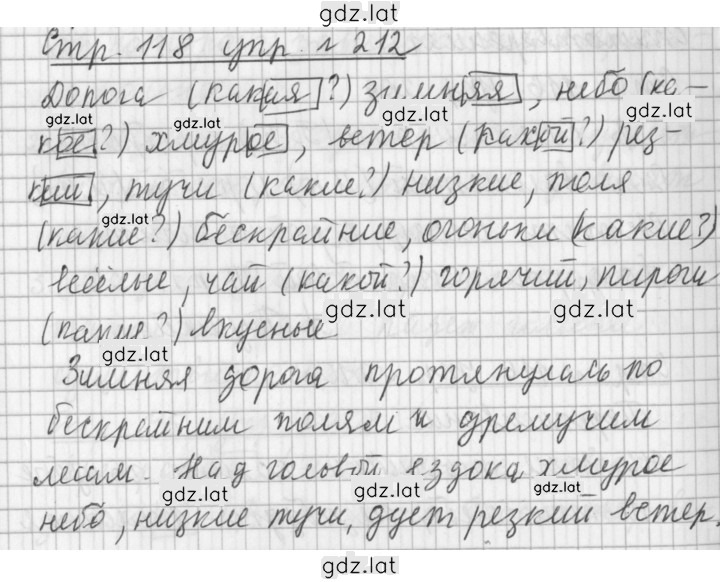 gdz.lat
Стр. 118 упр. № 212
gdz.lat
Дорога (какая?) зимняя, небо (ка-
gdz.lat gdz.lat gdz.lat
кое?) хмурое, ветер (какой?) рез-
кий, тучи (какие?) низкие, поля
gdz.lat gdz.lat
(какие?) бескрайние, огоньки (какие?)
gdz.lat gdz.lat gdz.lat
весёлые, чай (какой?) горячий, пироги
gdz.lat gdz.lat
(какие?) вкусные
gdz.lat gdz.lat
Зимняя дорога протянулась по
gdz.lat gdz.lat
бескрайним полям и дремучим
gdz.lat
лесам. Над головой ездока хмурое
gdz.lat gdz.lat gdz.lat
небо, низкие тучи, дует резкий ветер.
gdz.lat